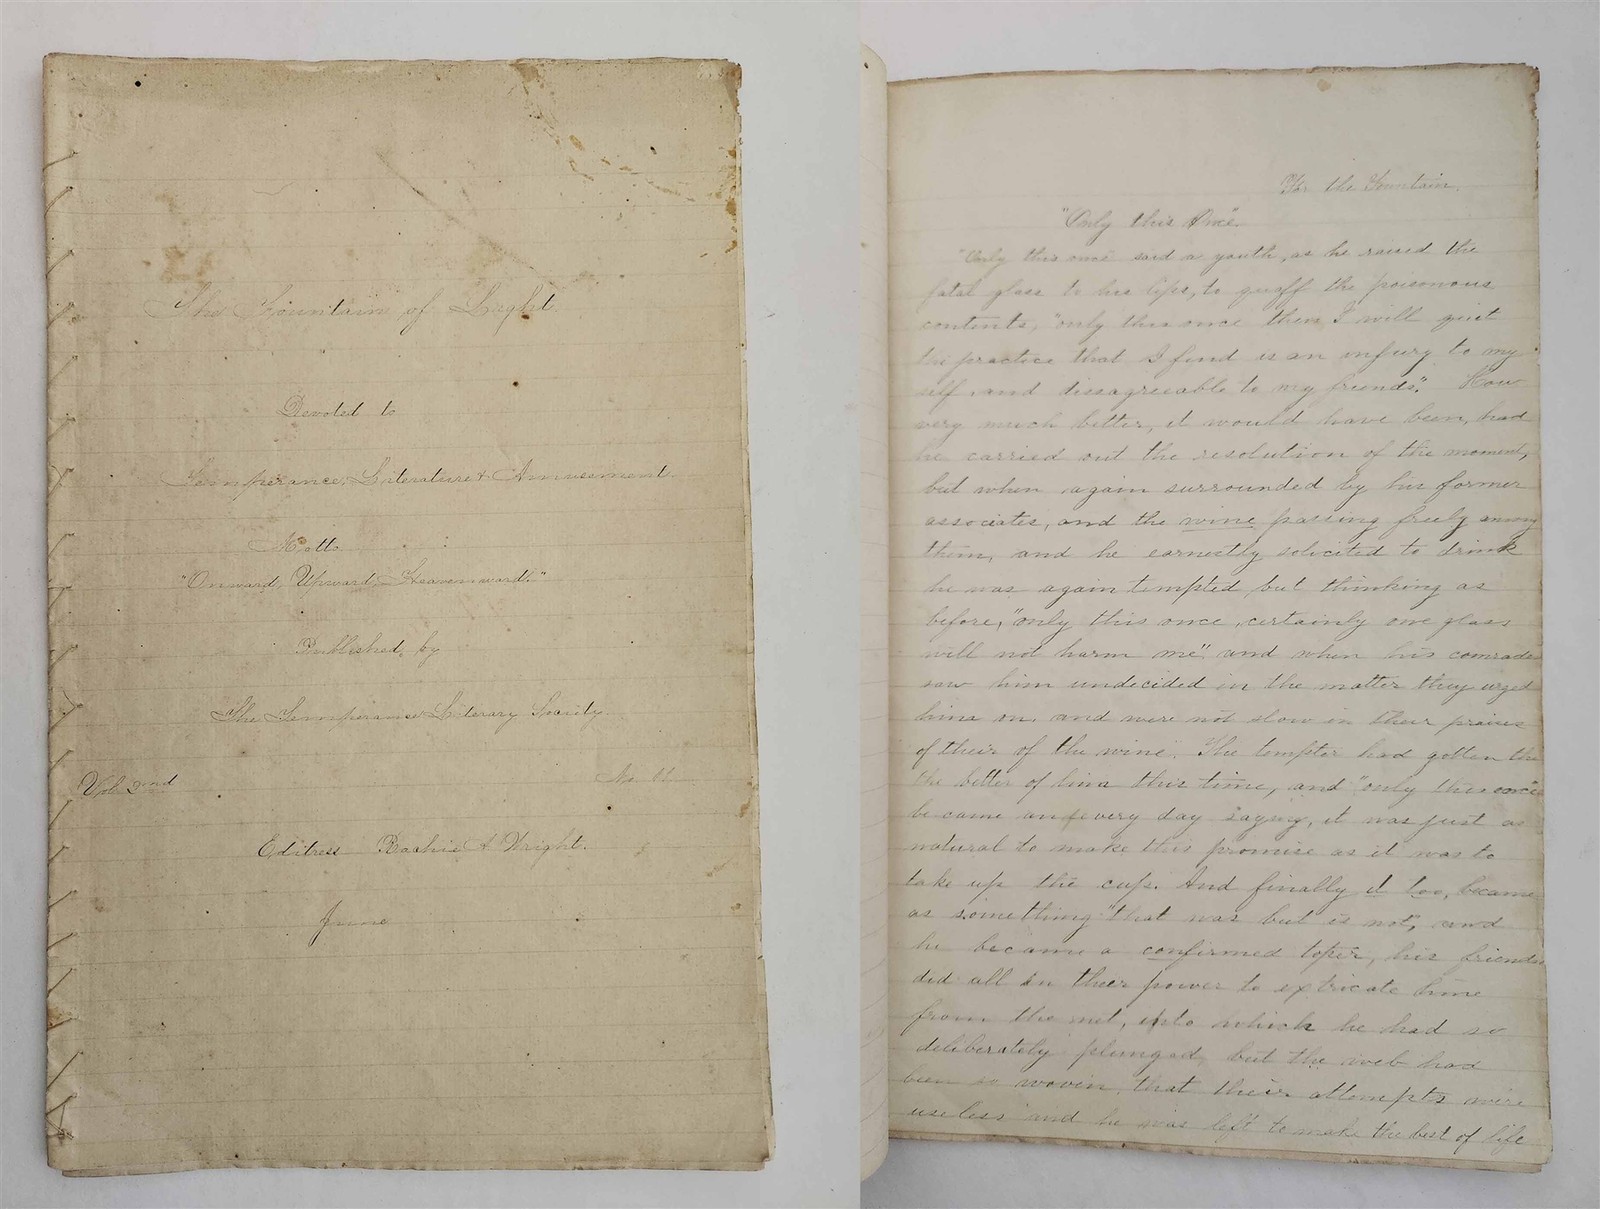 The Fountain of Light.
Devoted to
Temperance, Literature & Amusement.
Motto
"Onward, Upward, Heavenward."
Published by
The Temperance Literary Society.
Vol. 2nd No. 11.
Editress Rachie A Wright.
June
For the Fountain.
"Only this Once".
"Only this once" said a youth, as he raised the
fatal glass to his lips, to quaff the poisonous
contents, "only this once then I will quit
the practice that I find is an injury to my
self, and dissagreeable to my friends". How
very much better, it would have been, had
he carried out the resolution of the moment,
but when again surrounded by his former
associates, and the wine passing freely among
them, and he earnestly solicited to drink
he was again tempted, but thinking as
before, "only this once, certainly one glass
will not harm me" and when his comrades
saw him undecided in the matter they urged
him on, and were not slow in their praises
of their of the wine. The tempter had gotten the
the better of him this time, and "only this once"
became an every day saying, it was just as
natural to make this promise as it was to
take up the cup. And finally it too, became
as something "that was but is not", and
he became a confirmed toper, his friends
did all in their power to extricate him
from the net, into which he had so
deliberately plunged but the web had
been so wovin that their attempts were
useless and he was left to make the best of life